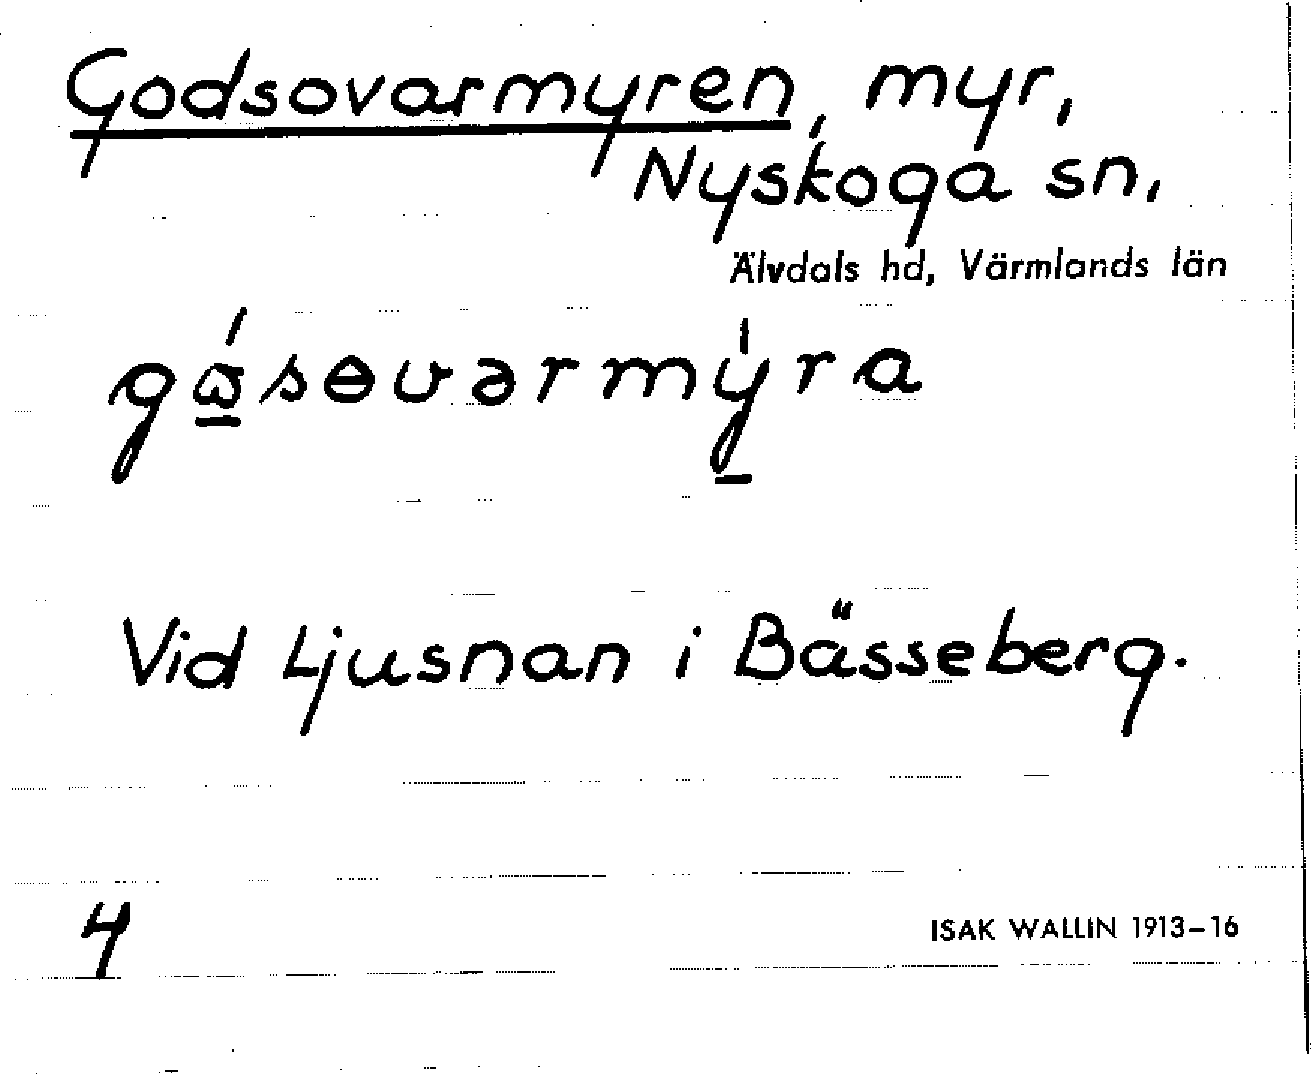 Godsovarmyren, myr,
Nyskoga sn,
Älvdals hd, Värmlands län
gɷ̠́sɵvərmý̠ra
Vid Ljusnan i Bässeberg.
4
ISAK WALLIN 1913-16